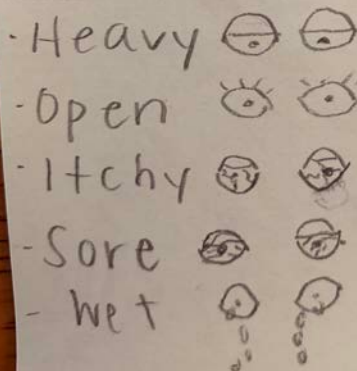 ·Heavy
·Open
·Itchy
-Sore
- Wet